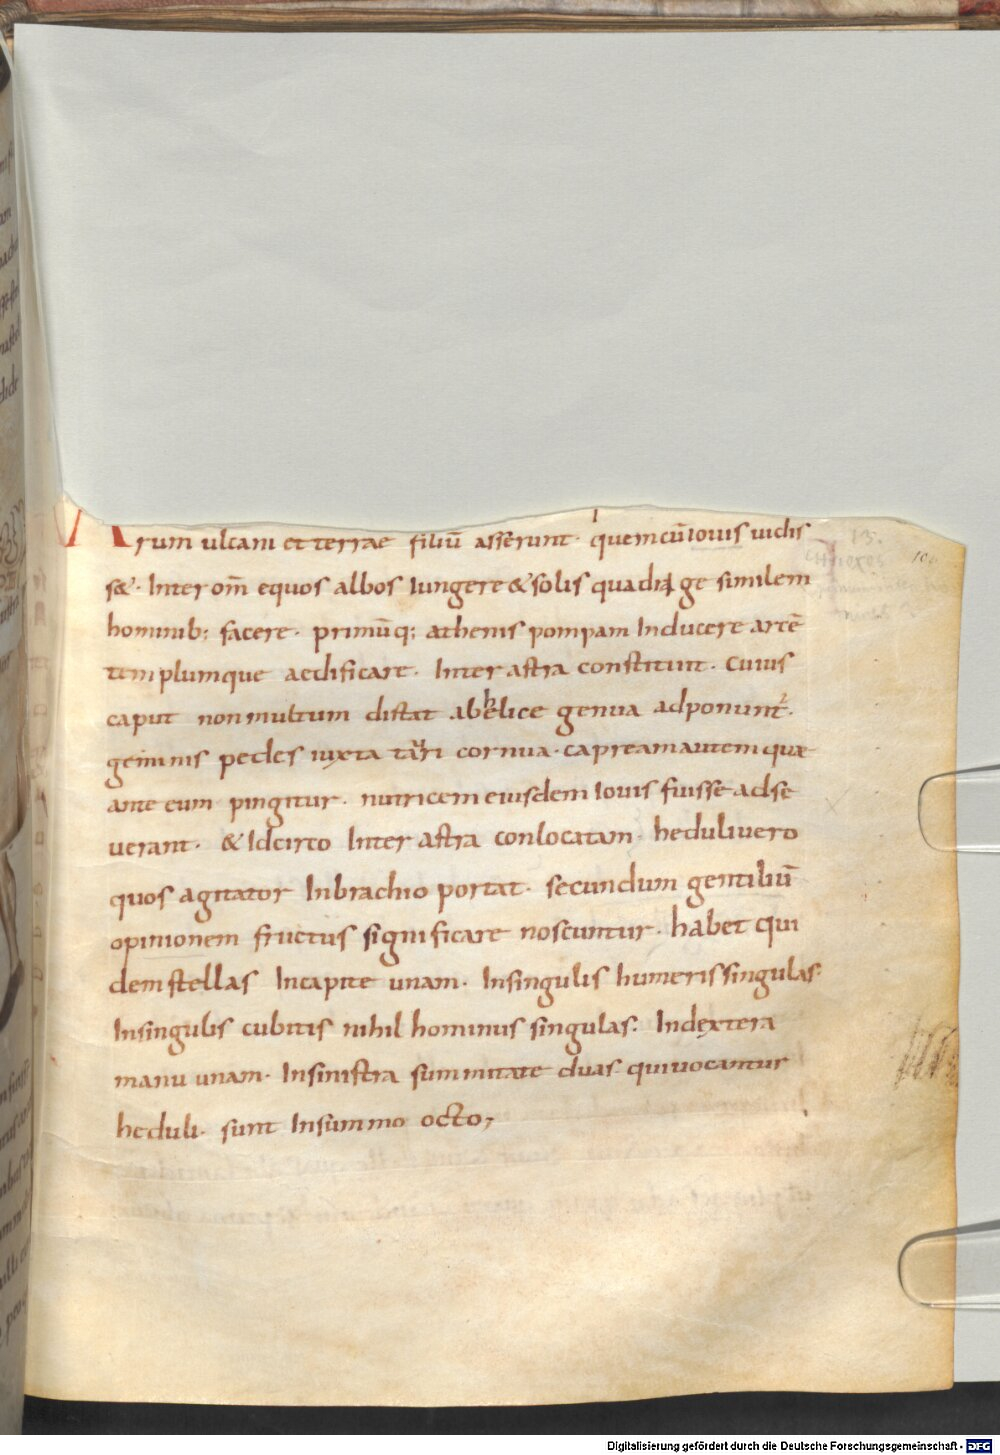 rum ulcani et terrae filiū asserunt · quem cū iouis uidis
s& · Inter om̄ equos albos Iungere & solis quadrige similem
hominib; facere · primūq; athenis pompam Inducere artē
templumque aedificare · Inter astra constituit · Cuius
caput non multum distat ab helice genua adponunt ·
geminis pedes iuxta tauri cornua · capream autem quae
ante eum pingitur · nutricem eiusdem Iouis fuisse adse
uerant · & Idcirco Inter astra conlocatam · heduli uero
quos agitator Inbrachio portat · secundum gentiliū
opinionem fructus significare noscuntur · habet qui
dem stellas Incapite unam · Insingulis humeris singulas
Insingulis cubitis nihil hominus singulas · Indextera
manu unam · Insinistra summitate duas qui uocantur
heduli · sunt Insummo octo;
Digitalisierung gefördert durch die Deutsche Forschungsgemeinschaft - DFG